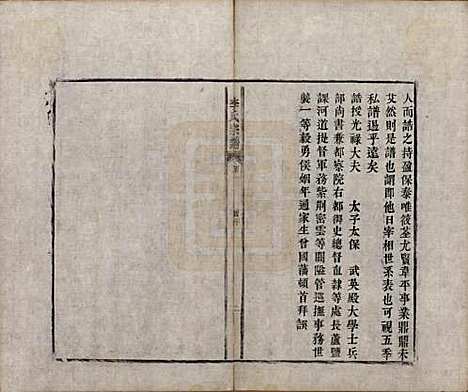 人而諮之持盈保泰唯後荃尤賢韋平事業鼎鼎未
艾然則是譜也謂即他日宰相世系表也可視五季
私譜過乎遠矣
誥授光祿大夫 太子太保 武英殿大學士兵
部尚書兼都察院右都御史總督直隸等處長蘆鹽
課河道提督軍務紫荆密雲等關隘管巡撫事務世
襲一等毅勇侯姻年通家生曾國藩頓首拜譔
李氏宗譜